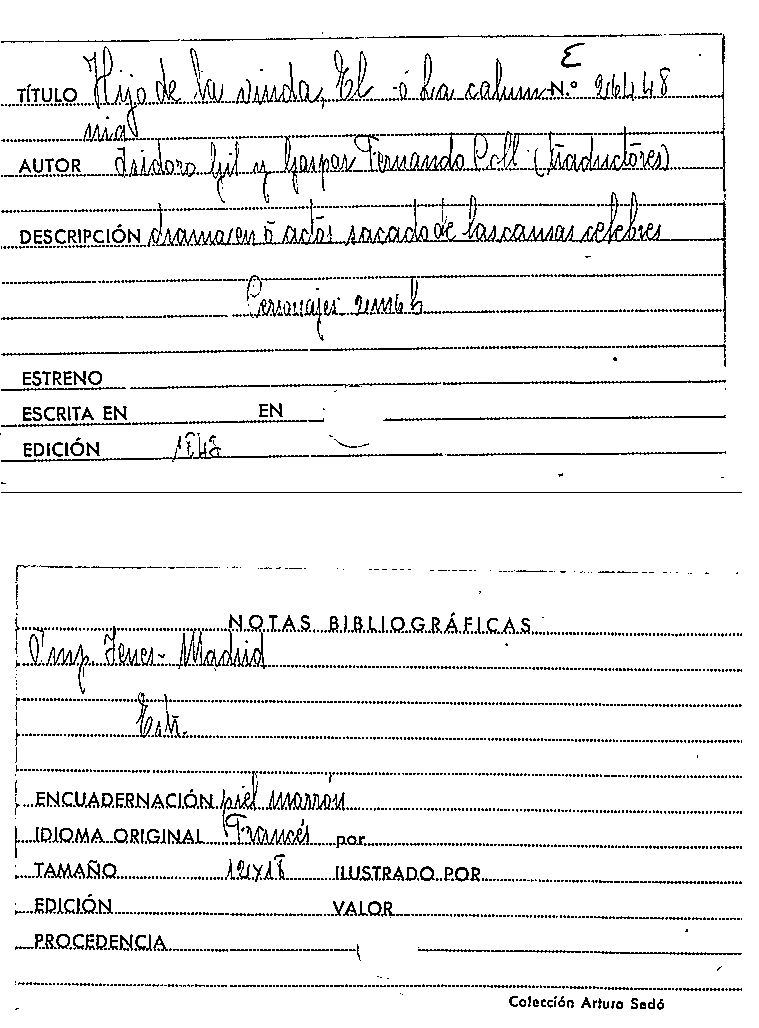 E
TÍTULO Hijo de la viuda, El ó La calum N.º 26448
nia
AUTOR Isidoro Gil y Gaspar Fernando Coll (traductores)
DESCRIPCIÓN drama en 5 actos sacado de las causas celebres
Personajes
ESTRENO
ESCRITA EN EN
EDICIÓN 1848
NOTAS BIBLIOGRÁFICAS
Imp. Yenes - Madrid
Estr.
ENCUADERNACIÓN piel marrón
IDIOMA ORIGINAL Francés por
TAMAÑO 12x18 ILUSTRADO POR
EDICIÓN VALOR
PROCEDENCIA
Colección Arturo Sedó